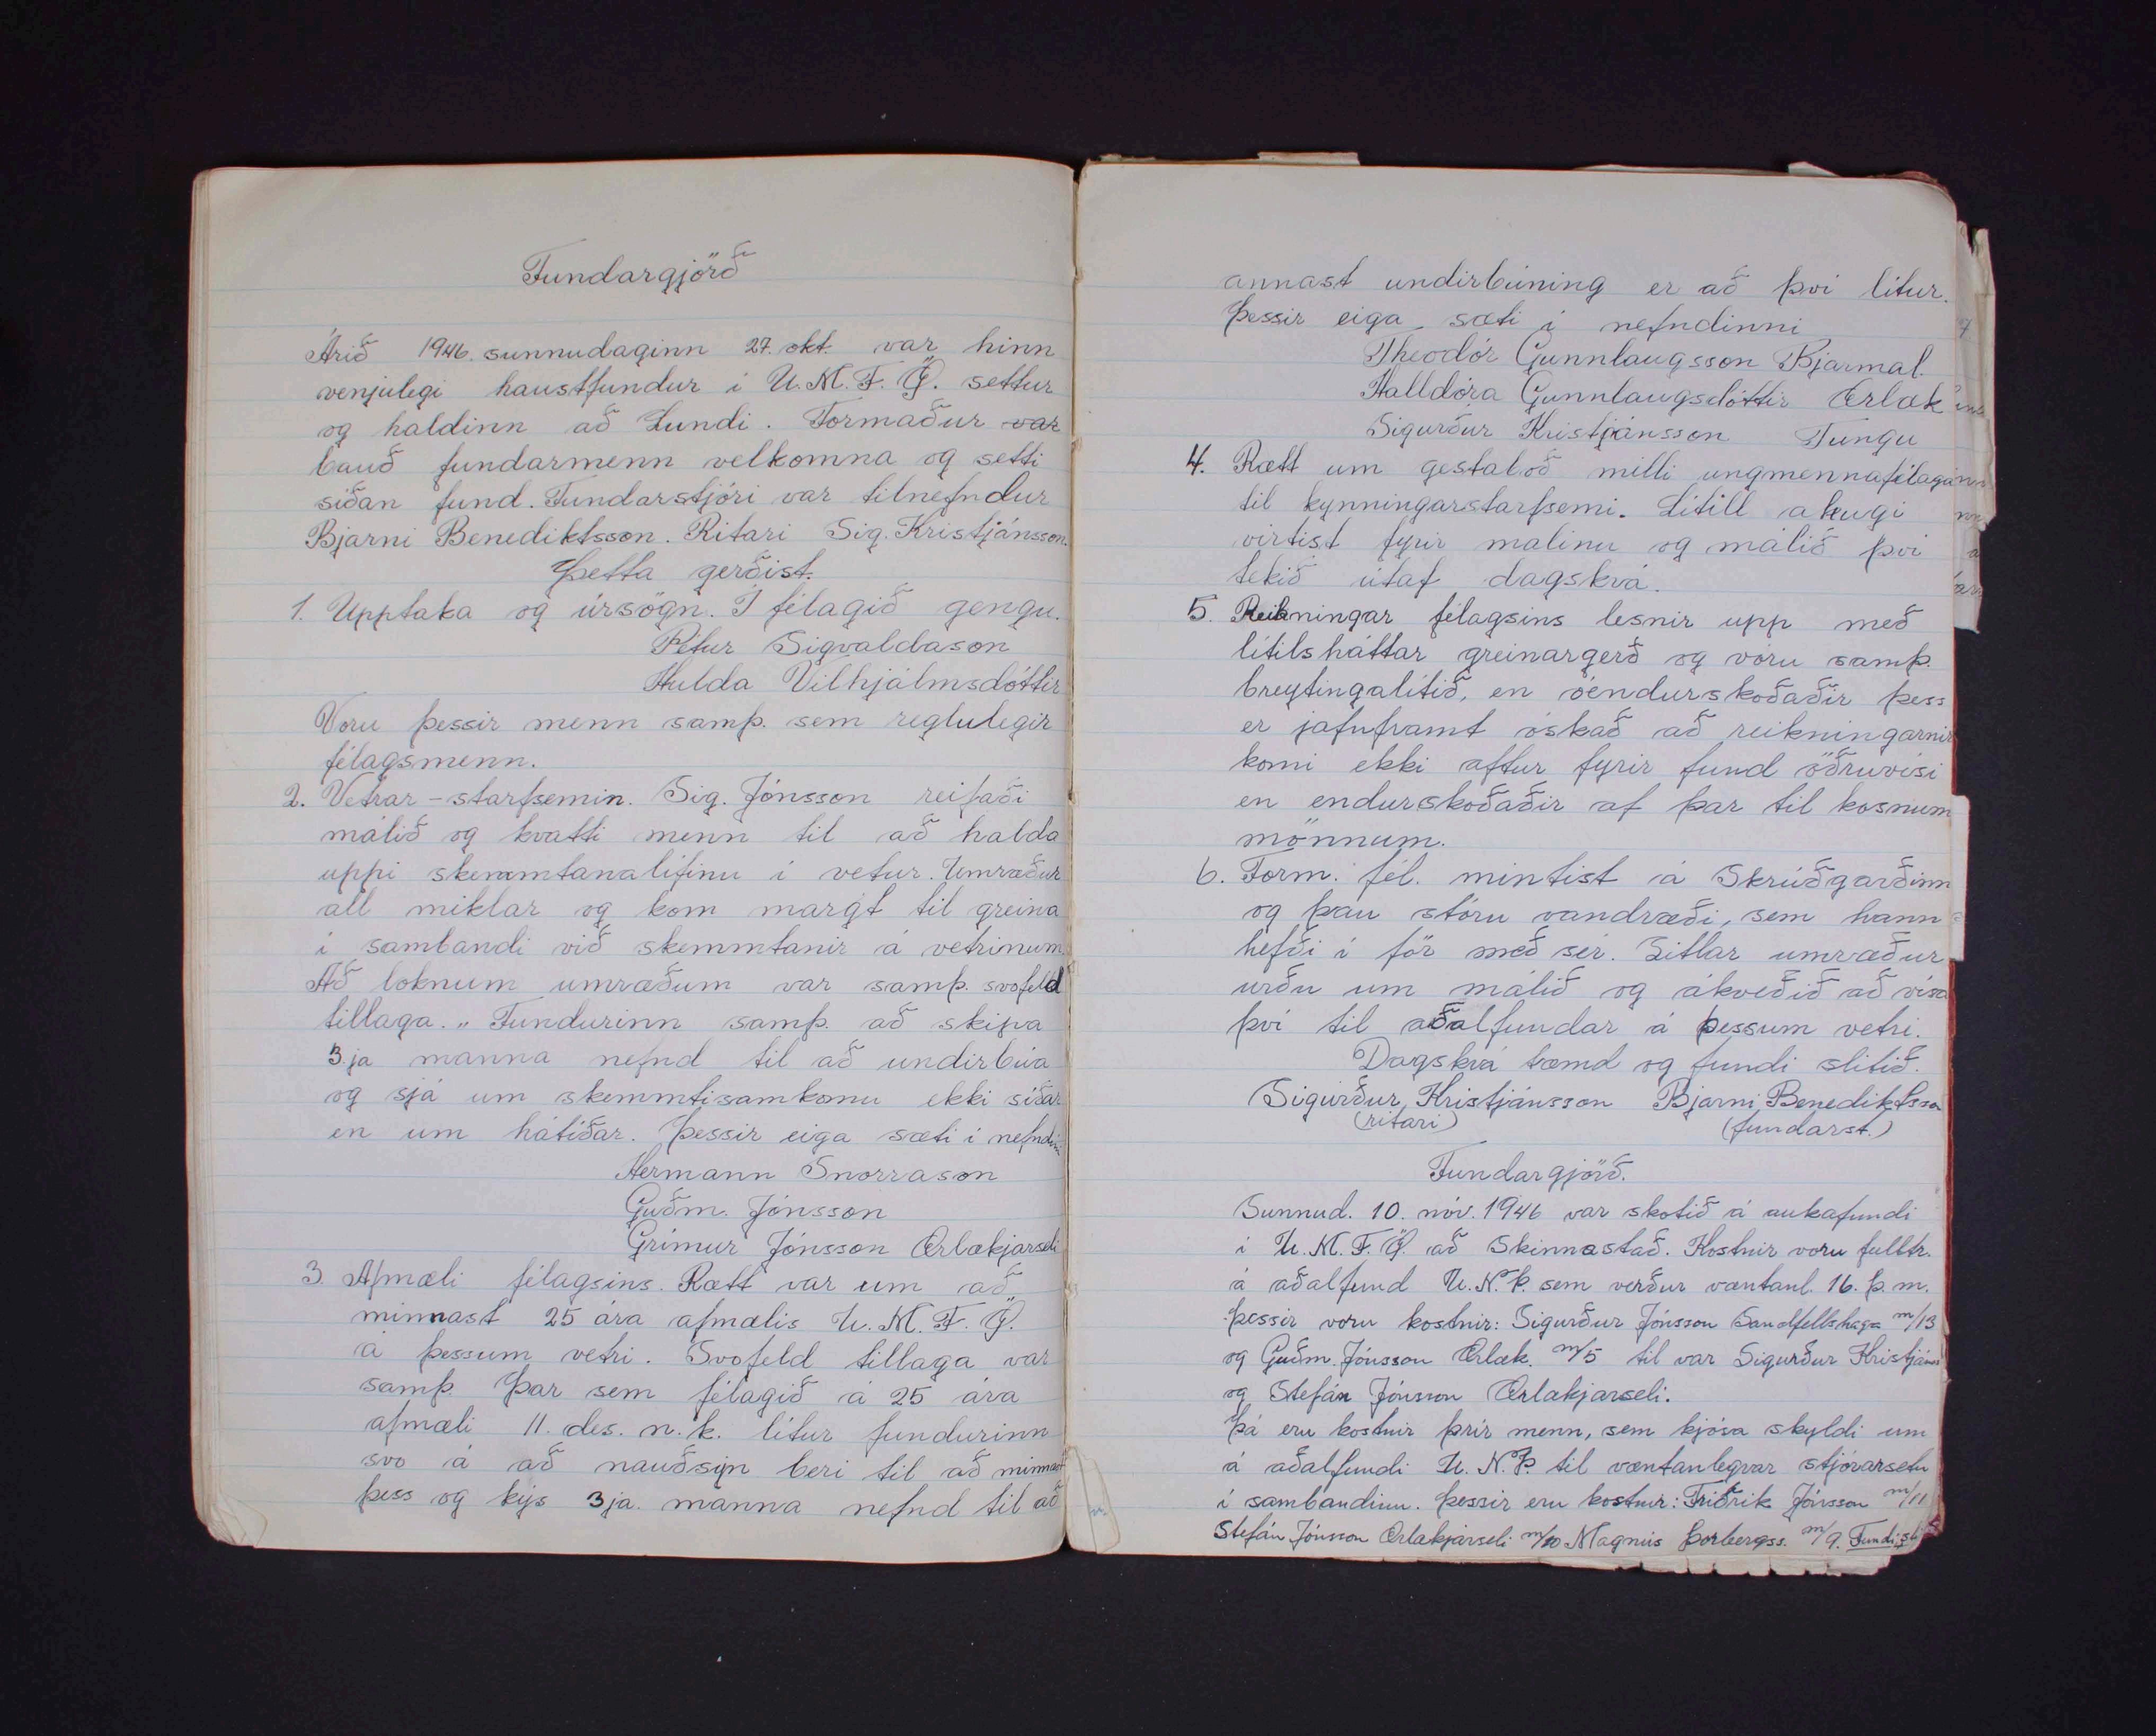 Fundargjörð
Árið 1946. sunnudaginn 27. okt. var hinn
venjulegi haustfundur í U.M.F.Ö. settur
og haldinn að Lundi. Formaður var
bauð fundarmenn velkomna og setti
síðan fund. Fundarstjóri var tilnefndur
Bjarni Benediktsson. Ritari Sig. Kristjánsson.
Þetta gerðist.
1. Upptaka og úrsögn. Í félagið gengu.
Pétur Sigvaldason
Hulda Vilhjálmsdóttir
Voru þessir menn samþ. sem reglulegir
félagsmenn.
2. Vetrar-starfsemin. Sig. Jónsson reifaði
málið og kvatti menn til að halda
uppi skemmtanalífinu í vetur. Umræður
all miklar og kom margt til greina
í sambandi við skemmtanir á vetrinum.
Að loknum umræðum var samþ. svofeld
tillaga. „Fundurinn samþ. að skipa
3ja manna nefnd til að undirbúa
og sjá um skemmtisamkomu ekki síðar
en um hátíðar. Þessir eiga sæti í nefndinni
Hermann Snorrason
Guðm. Jónsson
Grímur Jónsson Ærlækjarseli
3. Afmæli félagsins. Rætt var um að
minnast 25 ára afmælis U.M.F.Ö.
á þessum vetri. Svofeld tillaga var
samþ. Þar sem félagið á 25 ára
afmæli 11. des. n.k. lítur fundurinn
svo á að nauðsyn beri til að minnast
þess og kýs 3ja. manna nefnd til að
annast undirbúning er að því lítur.
Þessir eiga sæti í nefndinni
Theodór Gunnlaugsson Bjarmal.
Halldóra Gunnlaugsdóttir Ærlæk
Sigurður Kristjánsson Tungu
4. Rætt um gestaboð milli ungmennafélaga
til kynningarstarfsemi. Lítill ahugi
virtist fyrir malinu og málið því
tekið útaf dagskrá.
5. Reikningar félagsins lesnir upp með
lítilsháttar greinargerð og vóru samþ.
breytingalítið, en óendurskoðaðir þess
er jafnframt óskað að reikningarnir
komi ekki aftur fyrir fund öðruvísi
en endurskoðaðir af þar til kosnum
mönnum.
6. Form. fél. mintist á Skrúðgarðinn
og þau stóru vandræði, sem hann
hefði í för með sér. Litlar umræður
urðu um málið og ákveðið að vísa
því til aðalfundar á þessum vetri.
Dagskrá tæmd og fundi slitið.
Sigurður Kristjánsson Bjarni Benediktsson
(ritari) (fundarst.)
Fundargjörð.
Sunnud. 10. nóv. 1946 var skotið á aukafundi
í U.M.F.Ö. að Skinnastað. Kostnir voru fulltr.
á aðalfund U.N.Þ. sem verður væntanl. 16. þ.m.
Þessir voru kostnir: Sigurður Jónsson Sandfellshaga m/13
og Guðm. Jónsson Ærlæk. m/5 til var Sigurður Kristjáns
og Stefán Jónsson Ærlækjarseli.
Þá eru kostnir þrír menn, sem kjósa skyldi um
á aðalfundi U.N.Þ. til væntanlegrar stjórarsetu
í sambandinu. Þessir eru kostnir: Friðrik Jónsson m/11
Stefán Jónsson Ærlækjarseli m/10 Magnús Þorbergss. m/9. Fundi sl